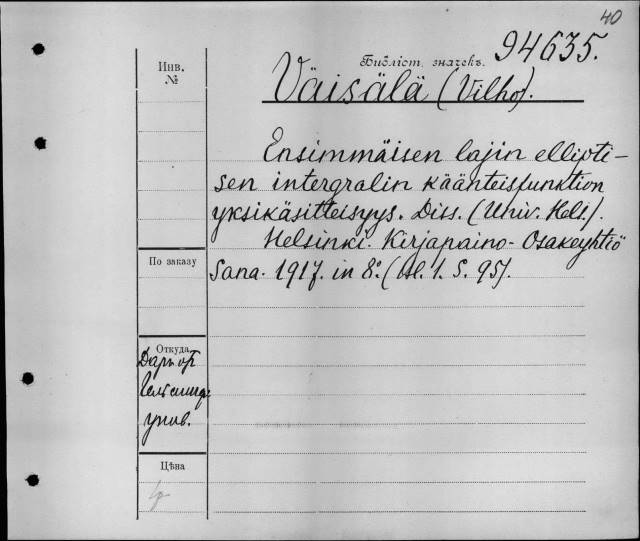 40
Инв.
№
Библіот. значекъ. 94635.
Väisälä (Vilho).
Ensimmäisen lajin ellipti-
sen intergralin käänteisfunktion
yksikäsitteisyys. Diss. (Univ. Hels).
Helsinki. Kirjapaino-Osakeyhtiö
Sana. 1917. in 8º. (bl. 1. S. 95).
По заказу
Откуда
Даръ от
Гельсингф.
унив.
Цѣна